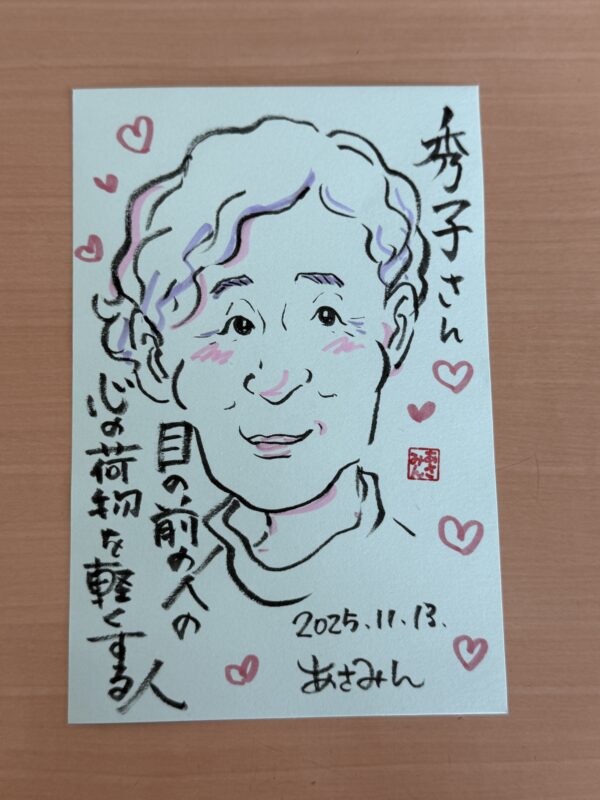 秀子さん
目の前の人の
心の荷物を軽くする人
あさみん
2025.11.13.
あさみん